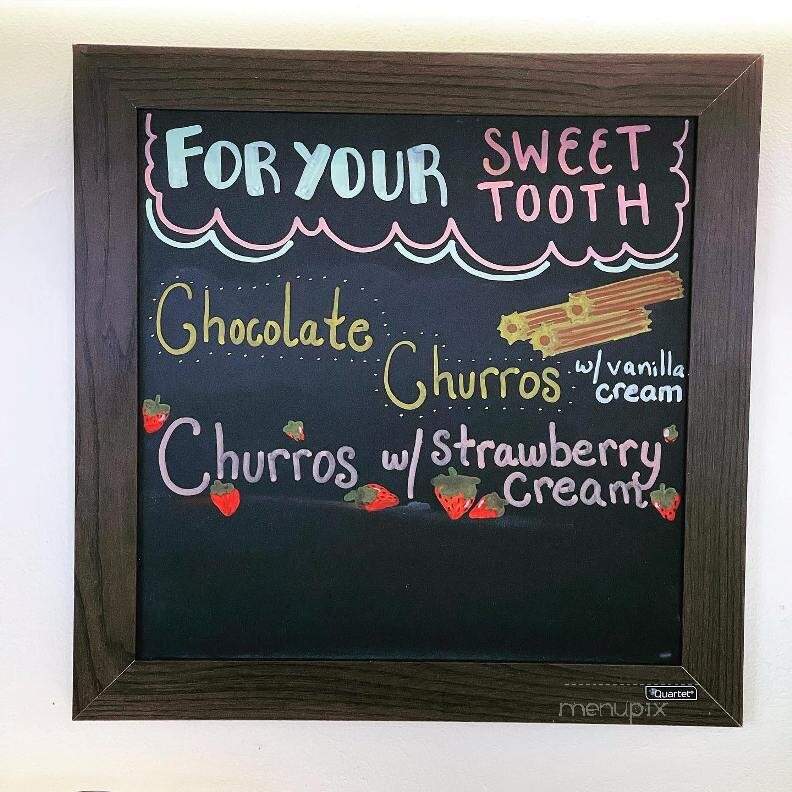 FOR YOUR SWEET
TOOTH
Chocolate
Churros w/ vanilla
cream
Churros w/ strawberry
cream
Quartet
menupix